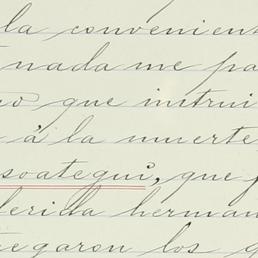 la convenien
nada me pa
que instrui
á la muerte
soategui, que
derilla herman
tregaron los